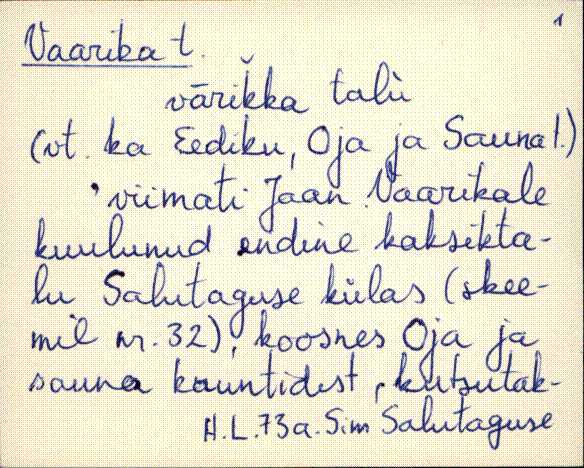 1
Vaarika t.
vārik̆ka talù
(vt. ka Eediku, Oja ja Sauna t.)
viimati Jaan Vaarikale
kuulunud endine kaksikta-
lu Salutaguse külas (skee-
mil nr. 32), koosnes Oja ja
sauna kruntidest, kutsutak-
H.L.73a. Sim Salutaguse